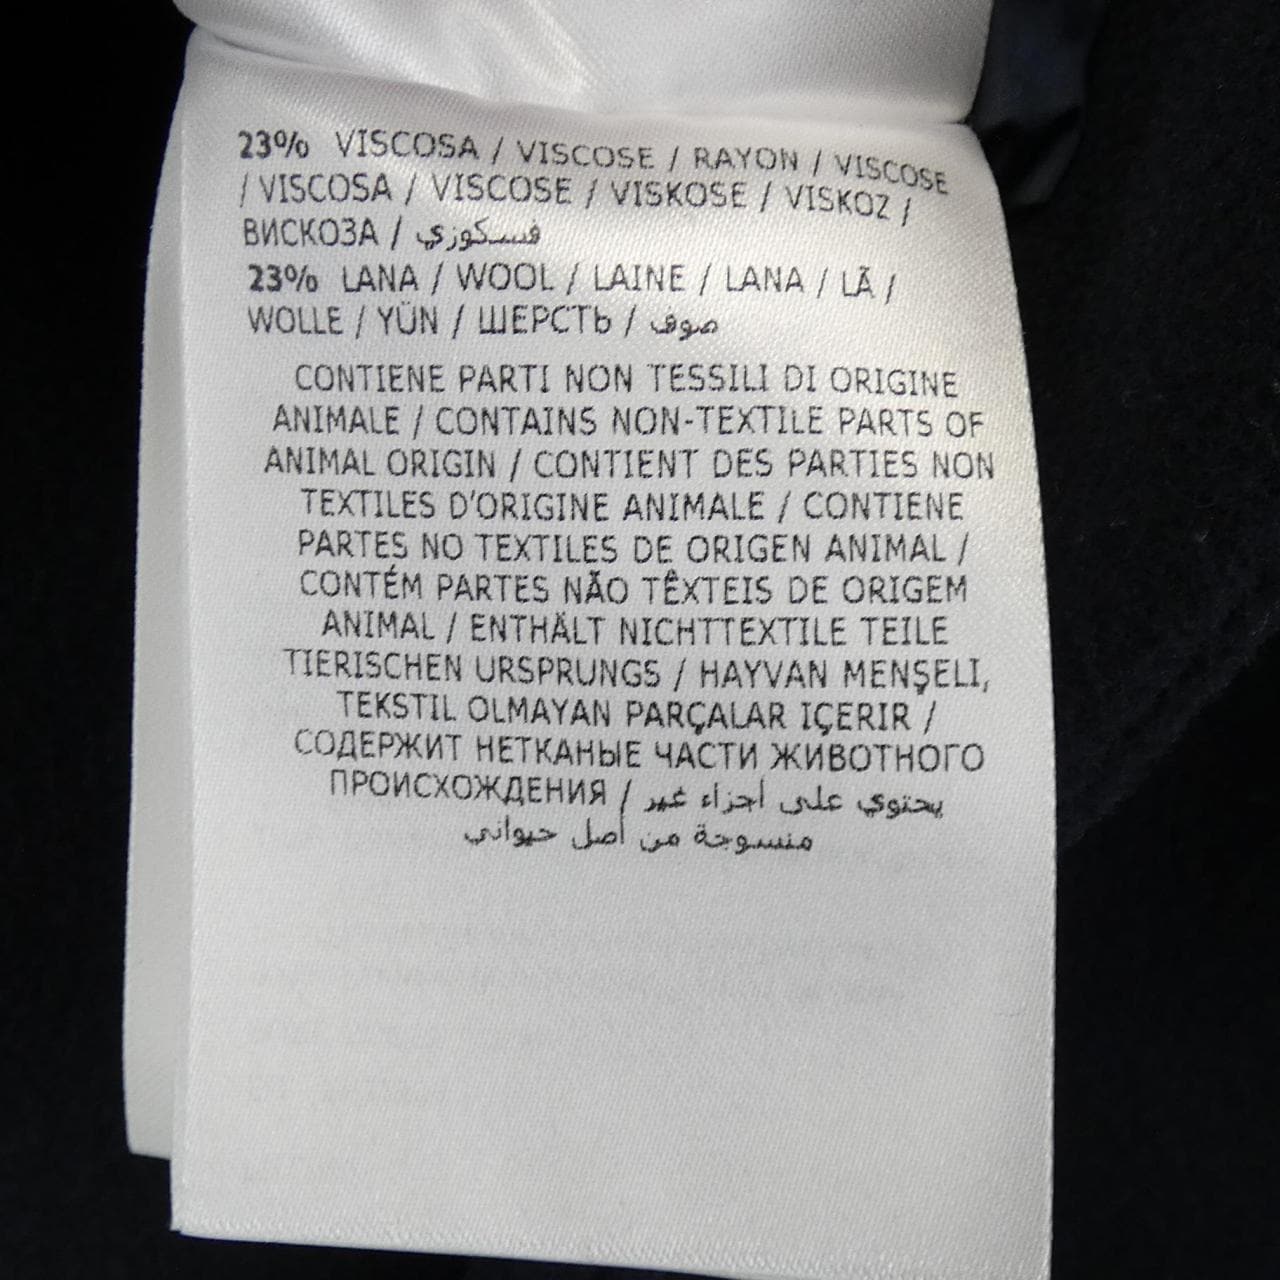 23% VISCOSA / VISCOSE / RAYON / VISCOSE
/ VISCOSA / VISCOSE / VISKOSE / VISKOZ /
ВИСКОЗА / فسكوزي
23% LANA / WOOL / LAINE / LANA / LÃ /
WOLLE / YÜN / ШЕРСТЬ / صوف
CONTIENE PARTI NON TESSILI DI ORIGINE
ANIMALE / CONTAINS NON-TEXTILE PARTS OF
ANIMAL ORIGIN / CONTIENT DES PARTIES NON
TEXTILES D'ORIGINE ANIMALE / CONTIENE
PARTES NO TEXTILES DE ORIGEN ANIMAL /
CONTÉM PARTES NÃO TÊXTEIS DE ORIGEM
ANIMAL / ENTHÄLT NICHTTEXTILE TEILE
TIERISCHEN URSPRUNGS / HAYVAN MENŞELI,
TEKSTIL OLMAYAN PARÇALAR IÇERIR /
СОДЕРЖИТ НЕТКАНЫЕ ЧАСТИ ЖИВОТНОГО
ПРОИСХОЖДЕНИЯ / يحتوي على أجزاء غير
منسوجة من أصل حيواني